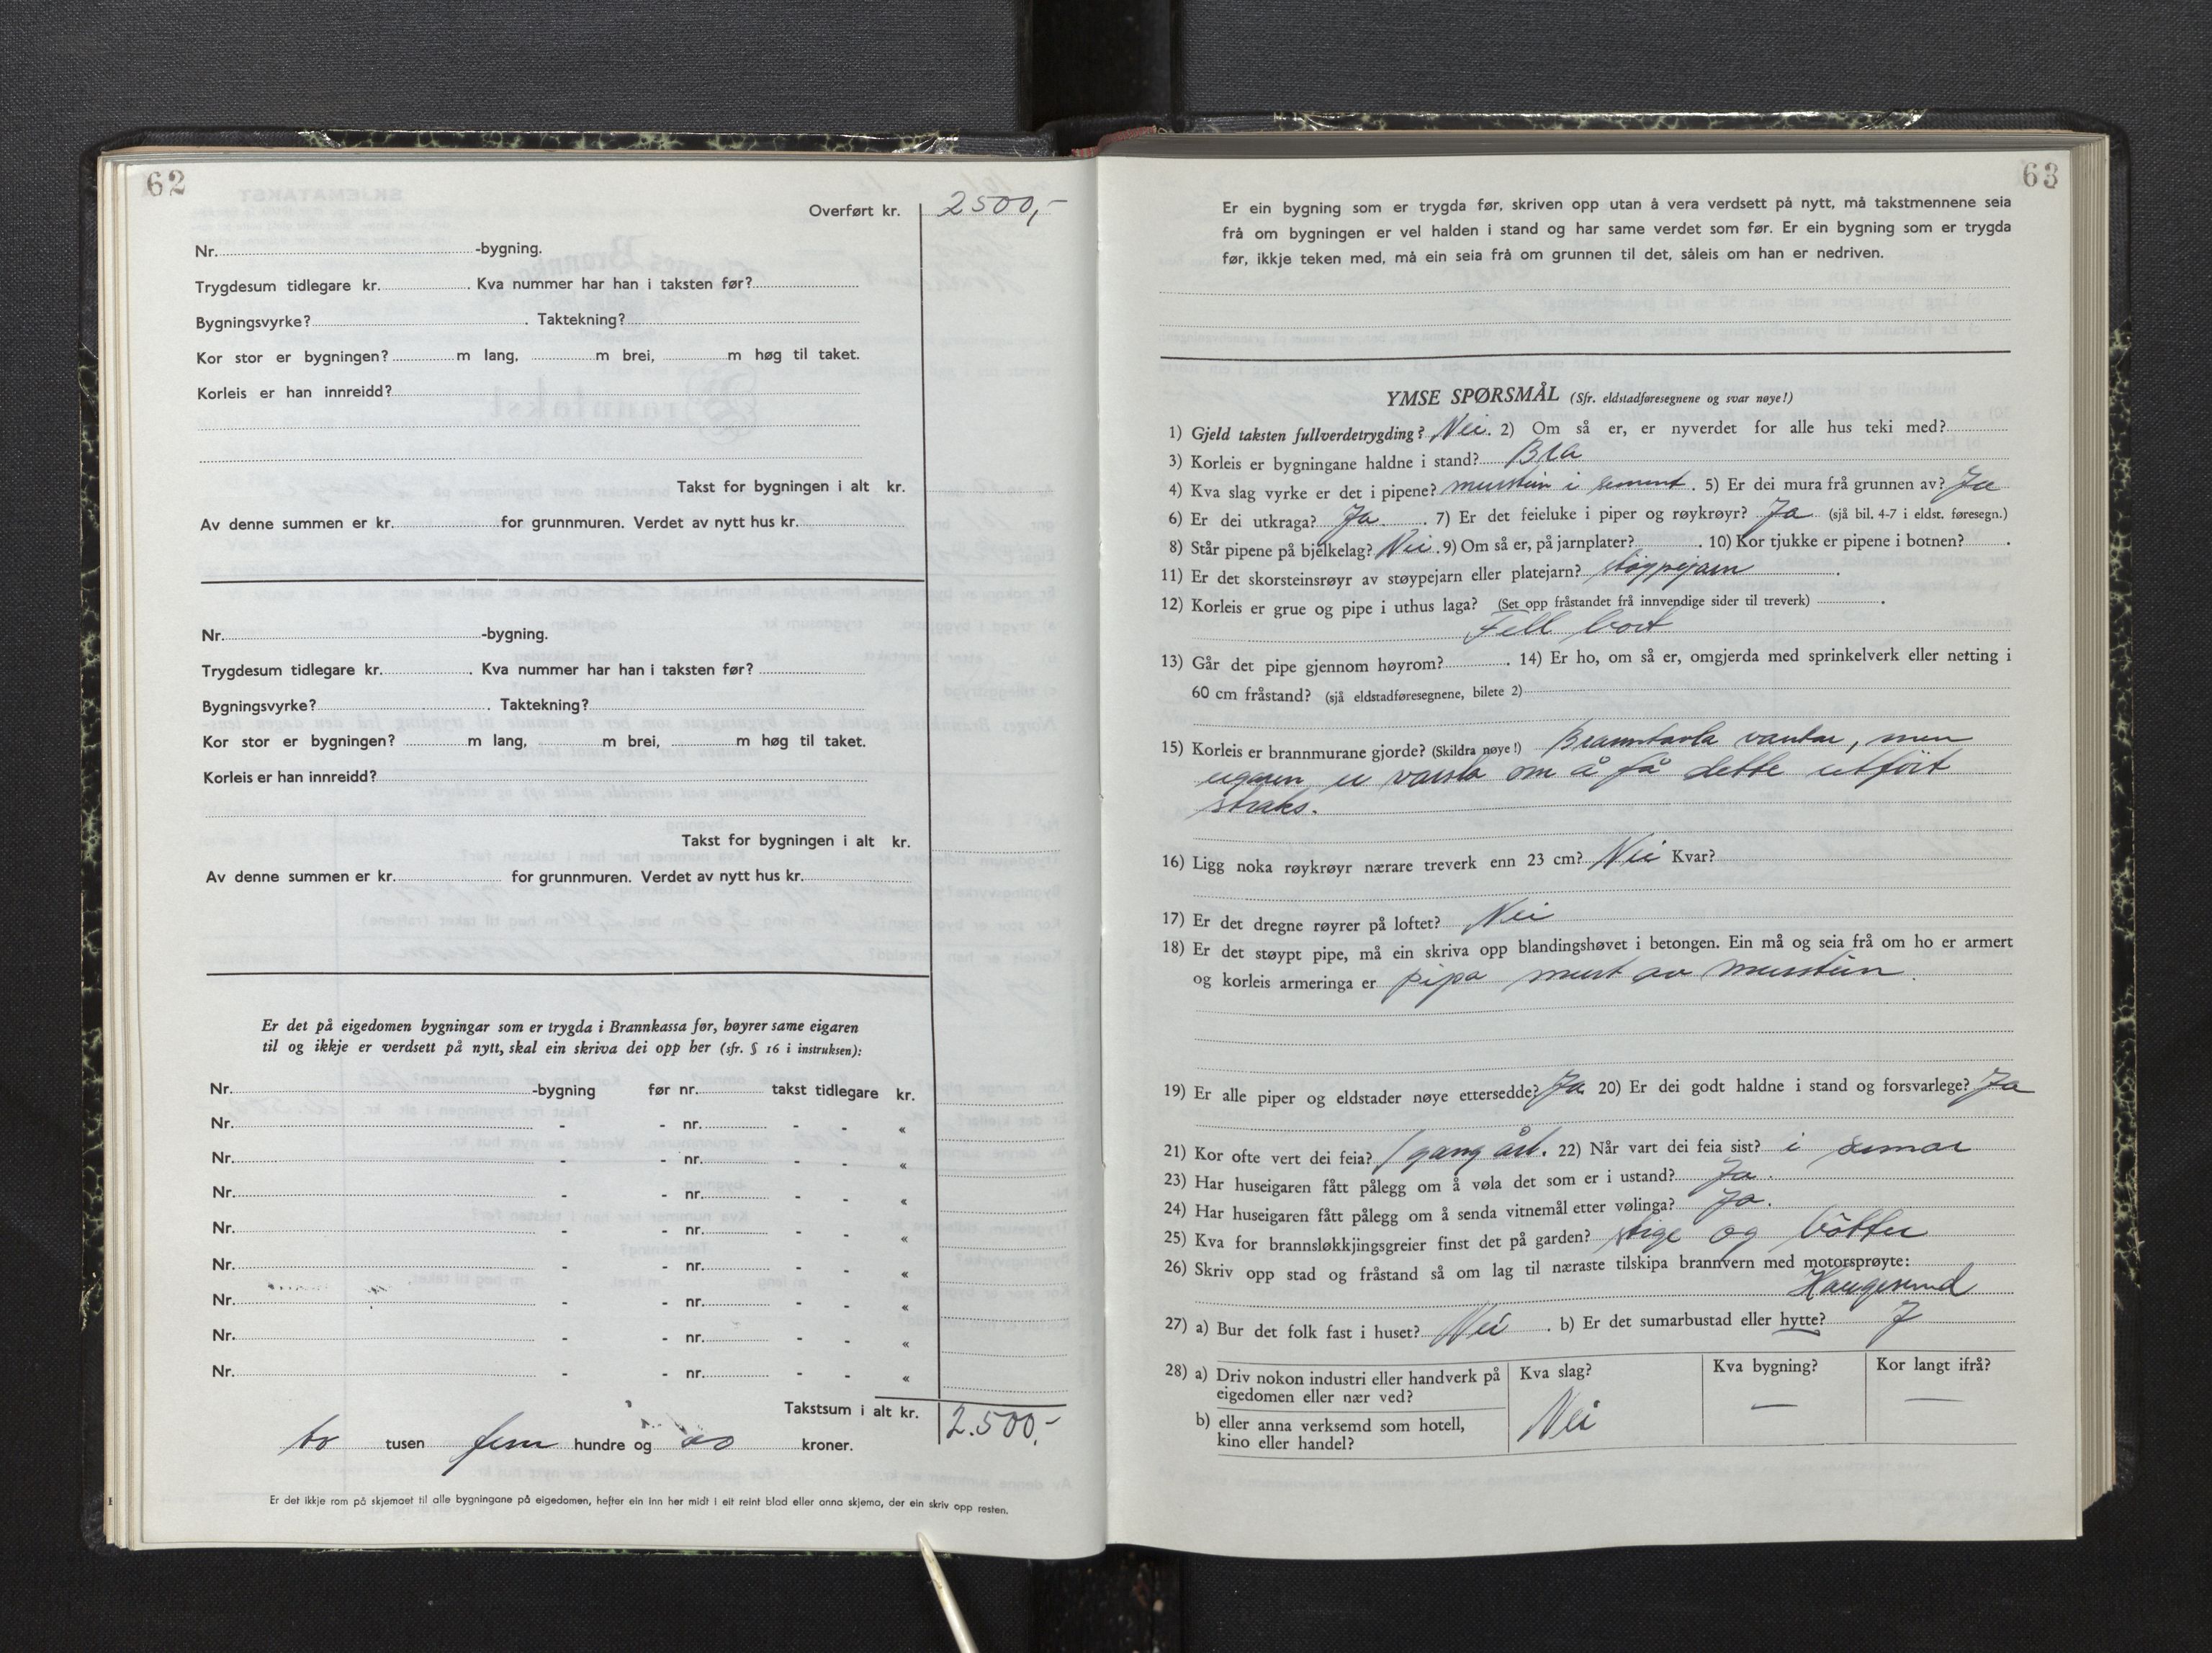 62
Overført kr. 2500,-
Nr. -bygning.
Trygdesum tidlegare kr. . Kva nummer har han i taksten før?
Bygningsvyrke? . Taktekning?
Kor stor er bygningen? m lang, m brei, m høg til taket.
Korleis er han innreidd?
Takst for bygningen i alt kr.
Av denne summen er kr. for grunnmuren. Verdet av nytt hus kr.
Nr. -bygning.
Trygdesum tidlegare kr. . Kva nummer har han i taksten før?
Bygningsvyrke? . Taktekning?
Kor stor er bygningen? m lang, m brei, m høg til taket.
Korleis er han innreidd?
Takst for bygningen i alt kr.
Av denne summen er kr. for grunnmuren. Verdet av nytt hus kr.
Er det på eigedomen bygningar som er trygda i Brannkassa før, høyrer same eigaren
til og ikkje er verdsett på nytt, skal ein skriva dei opp her (sfr. § 16 i instruksen):
Nr. -bygning før nr. takst tidlegare kr.
Nr. - - nr. - - «
Nr. - - nr. - - «
Nr. - - nr. - - «
Nr. - - nr. - - «
Nr. - - nr. - - «
Nr. - - nr. - - «
Nr. - - nr. - - «
Nr. - - nr. - - «
Takstsum i alt kr. 2.500,-
to tusen fem hundre og oo kroner.
Er det ikkje rom på skjemaet til alle bygningane på eigedomen, hefter ein inn her midt i eit reint blad eller anna skjema, der ein skriv opp resten.
63
Er ein bygning som er trygda før, skriven opp utan å vera verdsett på nytt, må takstmennene seia
frå om bygningen er vel halden i stand og har same verdet som før. Er ein bygning som er trygda
før, ikkje teken med, må ein seia frå om grunnen til det, såleis om han er nedriven.
YMSE SPØRSMÅL (Sfr. eldstadføresegnene og svar nøye!)
1) Gjeld taksten fullverdetrygding? Nei. 2) Om så er, er nyverdet for alle hus teki med?
3) Korleis er bygningane haldne i stand? Bra
4) Kva slag vyrke er det i pipene? murstein i sement. 5) Er dei mura frå grunnen av? Ja
6) Er dei utkraga? Ja. 7) Er det feieluke i piper og røykrøyr? Ja (sjå bil. 4-7 i eldst. føresegn.)
8) Står pipene på bjelkelag? Nei. 9) Om så er, på jarnplater? . 10) Kor tjukke er pipene i botnen? .
11) Er det skorsteinsrøyr av støypejarn eller platejarn? støypejarn .
12) Korleis er grue og pipe i uthus laga? (Set opp fråstandet frå innvendige sider til treverk) .
Fell bort
13) Går det pipe gjennom høyrom? . 14) Er ho, om så er, omgjerda med sprinkelverk eller netting i
60 cm fråstand? (sjå eldstadføresegnene, bilete 2)
15) Korleis er brannmurane gjorde? (Skildra nøye!) Branntavla vantar, men
eigaren er varsla om å få dette utfört
straks.
16) Ligg noka røykrøyr nærare treverk enn 23 cm? Nei Kvar?
17) Er det dregne røyrer på loftet? Nei
18) Er det støypt pipe, må ein skriva opp blandingshøvet i betongen. Ein må og seia frå om ho er armert
og korleis armeringa er pipa murt av murstein.
19) Er alle piper og eldstader nøye ettersedde? Ja 20) Er dei godt haldne i stand og forsvarlege? Ja
21) Kor ofte vert dei feia? 1 gang årl. 22) Når vart dei feia sist? i sumar
23) Har huseigaren fått pålegg om å vøla det som er i ustand? Ja.
24) Har huseigaren fått pålegg om å senda vitnemål etter vølinga? Ja.
25) Kva for brannsløkkjingsgreier finst det på garden? stige og bötter
26) Skriv opp stad og fråstand så om lag til næraste tilskipa brannvern med motorsprøyte:
Haugesund
27) a) Bur det folk fast i huset? Nei . b) Er det sumarbustad eller hytte? J
28) a) Driv nokon industri eller handverk på
eigedomen eller nær ved?
b) eller anna verksemd som hotell,
kino eller handel?
Kva slag? Kva bygning? Kor langt ifrå?
Nei — —